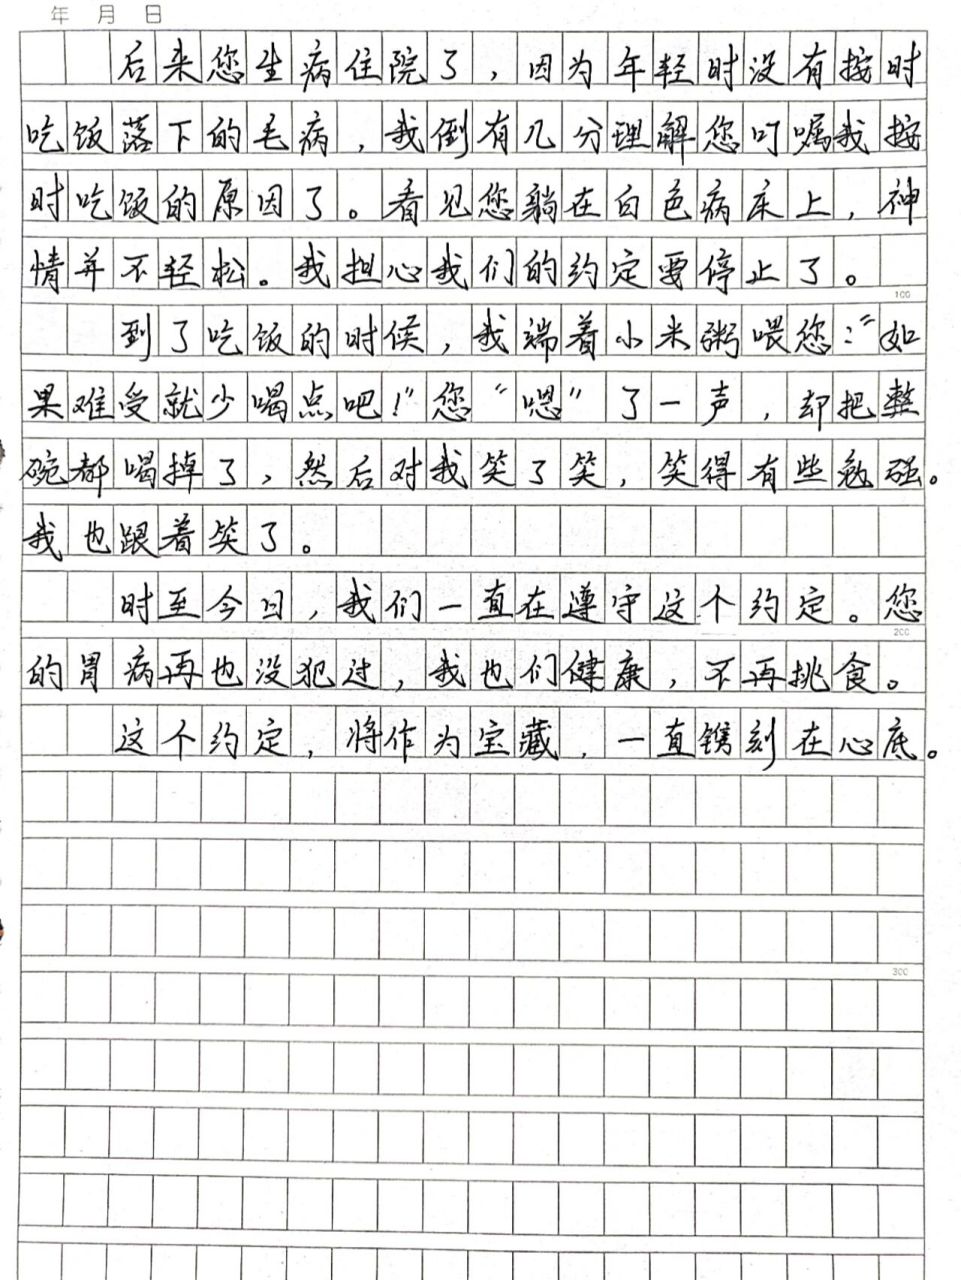 年 月 日
后来您生病住院了，因为年轻时没有按时
吃饭落下的毛病，我倒有几分理解您叮嘱我按
时吃饭的原因了。看见您躺在白色病床上，神
情并不轻松。我担心我们的约定要停止了。
100
到了吃饭的时候，我端着小米粥喂您：“如
果难受就少喝点吧！”您“嗯”了一声，却把整
碗都喝掉了，然后对我笑了笑，笑得有些勉强。
我也跟着笑了。
时至今日，我们一直在遵守这个约定。您
200
的胃病再也没犯过，我也们健康，不再挑食。
这个约定，将作为宝藏，一直镌刻在心底。
300